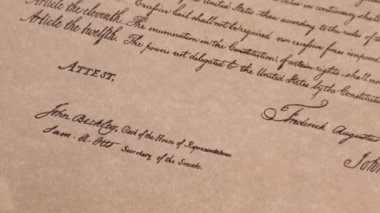 United States, then according to the rules of
Article the eleventh. Excessive bail shall not be required, nor excessive fines imposed
Article the twelfth. The enumeration in the Constitution, of certain rights, shall no
The powers not delegated to the United States by the Constitution
ATTEST,
Frederick Augustus
John Beckley, Clerk of the House of Representatives.
Sam. A. Otis Secretary of the Senate.
John